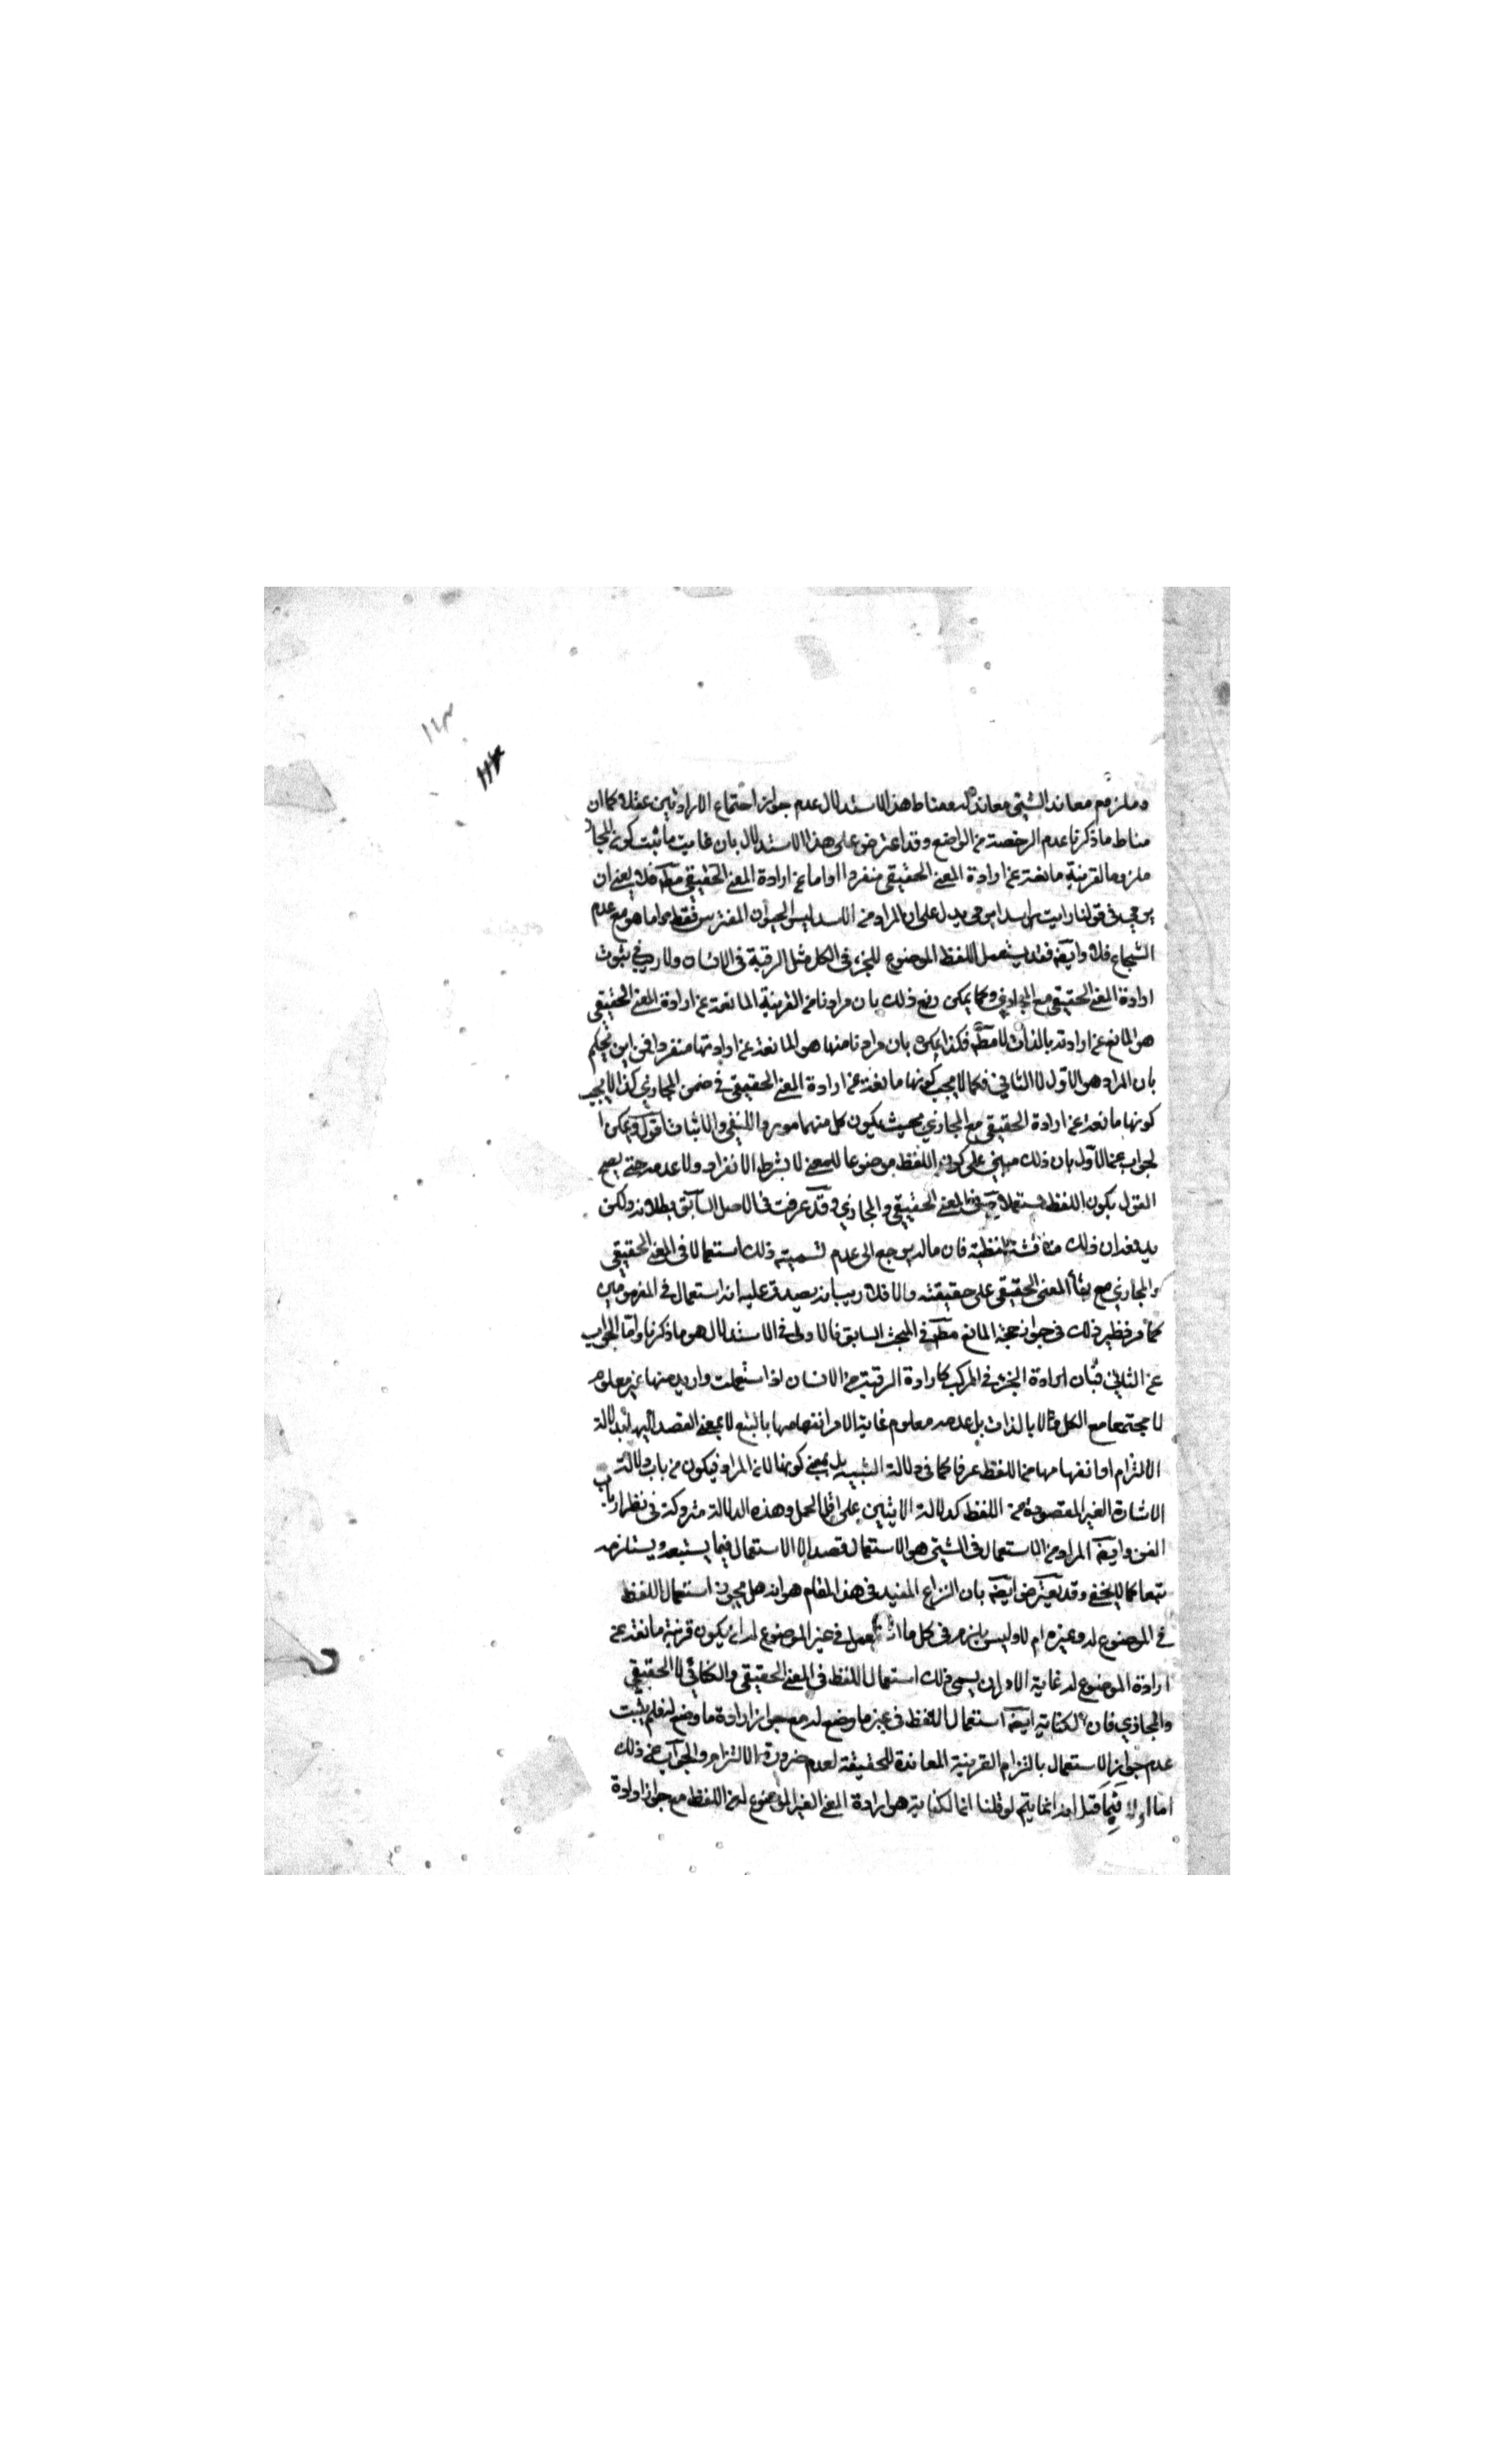 ١١٣
١١٣
وملزوم معاند الشيئ معاند له ومناط هذا الاستدلال عدم جواز اجتماع الارادتين عقلا كما ان
مناط ما ذكرنا عدم الرخصة من الواضع وقد اعترض على هذا الاستدلال بان غاية ما ثبت كون المجاز
ملزوما لقرينة مانعة عن ارادة المعنى الحقيقى منفردا واما عن ارادة المعنى الحقيقى مطه فلا يعنى ان
يرمى فى قولنا رايت اسدا يرمى يدل على ان المراد من الاسد ليس الحيوان المفترس فقط واما هو مع عدم
الشجاع فلا وايضه فقد يستعمل اللفظ الموضوع للجزء فى الكل مثل الرقبة فى الانسان ولا ريب فى ثبوت
ارادة المعنى الحقيقى مع المجازي وكما يمكن دفع ذلك بان مرادنا من القرينة المانعة عن ارادة المعنى الحقيقى
هو المانع عن ارادته بالذات لا مطه فكذا يمكن بان مرادنا منها هو المانعة عن ارادتها منفردا فمن اين يحكم
بان المراد هو الاول لا الثاني فكما لا يجب كونها مانعة عن ارادة المعنى الحقيقى فى ضمن المجازي كذا لا يجب
كونها مانعة عن ارادة الحقيقى مع المجازي بحيث يكون كل منهما مورد النفى والاثبات اقول ويمكن ا
لجواب عن الاول بان ذلك مبني على كون اللفظ موضوعا للمعنى لا بشرط الانفراد ولا عدمه حتى يصح
القول بكون اللفظ مستعملا فى المعنى الحقيقى والمجازي وقد عرفت فى الاصل السابق بطلانه ولكن
يدفعه ان ذلك مناقشة لفظية فان ماله يرجع الى عدم تسميته ذلك استعمالا فى المعنى الحقيقى
والمجازي مع بقاء المعنى الحقيقى على حقيقته والا فلا ريب انه يصدق عليه انه استعمال فى المفهومين
كما مر نظير ذلك فى جواب حجة المانع مطه فى المبحث السابق فالاولى فى الاستدلال هو ما ذكرنا واما الجواب
عن الثاني فبان ارادة الجزء فى المركب كارادة الرقبة من الانسان اذا استعملت واريد منها غير معلوم
لا مجتمعا مع الكل ولا بالذات بل عدمه معلوم غاية الامر انفهامها بالتبع لا بمعنى القصد اليه بدلالة
الالتزام او انفهامها من اللفظ عرفا كما فى دلالة التنبيه بل بمعنى كونها لازم المراد فيكون من باب دلالة
الاشارة الغير المقصودة من اللفظ كدلالة الايتين على اقل الحمل وهذه الدلالة متروكة فى نظر ارباب
الفن وايضه المراد من الاستعمال فى الشيئ هو الاستعمال قصدا لا الاستعمال فيما يستتبعه ويستلزمه
تبعا كما لا يخفى وقد يعترض ايضه بان النزاع المفيد فى هذا المقام هو انه هل يجوز استعمال اللفظ
فى الموضوع له وغيره ام لا وليس يلزم فى كل ما استعمل فى غير الموضوع له ان يكون قرينة مانعة عن
ارادة الموضوع له غاية الامر ان يسمى ذلك استعمال اللفظ فى المعنى الحقيقى والكنائي لا الحقيقى
والمجازي فان الكناية ايضه استعمال اللفظ فى غير ما وضع له مع جواز ارادة ما وضع له فلم يثبت
عدم جواز الاستعمال بالتزام القرينة المعاندة للحقيقة لعدم ضرورة الالتزام والجواب عن ذلك
اما اولا فيما قيل انه انما يتم لو قلنا ان الكناية هو ارادة المعنى الغير الموضوع له من اللفظ مع جواز ارادة